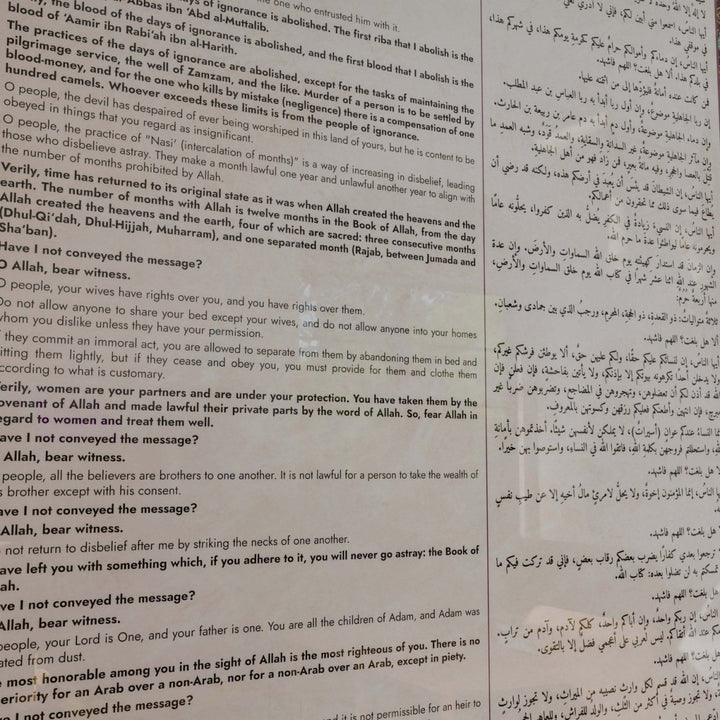 the one who entrusted him with it.
of ignorance is abolished. The first riba that I abolish is the
'Abbas ibn 'Abd al-Muttalib.
the blood of the days of ignorance is abolished, and the first blood that I abolish is the
blood of 'Aamir ibn Rabi'ah ibn al-Harith.
The practices of the days of ignorance are abolished, except for the tasks of maintaining the
pilgrimage service, the well of Zamzam, and the like. Murder of a person is to be settled by
blood-money, and for the one who kills by mistake (negligence) there is a compensation of one
hundred camels. Whoever exceeds these limits is from the people of ignorance.
O people, the devil has despaired of ever being worshiped in this land of yours, but he is content to be
obeyed in things that you regard as insignificant.
O people, the practice of "Nasi' (intercalation of months)" is a way of increasing in disbelief, leading
those who disbelieve astray. They make a month lawful one year and unlawful another year to align with
the number of months prohibited by Allah.
Verily, time has returned to its original state as it was when Allah created the heavens and the
earth. The number of months with Allah is twelve months in the Book of Allah, from the day
Allah created the heavens and the earth, four of which are sacred: three consecutive months
(Dhul-Qi'dah, Dhul-Hijjah, Muharram), and one separated month (Rajab, between Jumada and
Sha'ban).
Have I not conveyed the message?
O Allah, bear witness.
O people, your wives have rights over you, and you have rights over them.
Do not allow anyone to share your bed except your wives, and do not allow anyone into your homes
whom you dislike unless they have your permission.
they commit an immoral act, you are allowed to separate from them by abandoning them in bed and
itting them lightly, but if they cease and obey you, you must provide for them and clothe them
according to what is customary.
Verily, women are your partners and are under your protection. You have taken them by the
ovenant of Allah and made lawful their private parts by the word of Allah. So, fear Allah in
egard to women and treat them well.
ave I not conveyed the message?
Allah, bear witness.
people, all the believers are brothers to one another. It is not lawful for a person to take the wealth of
s brother except with his consent.
ave I not conveyed the message?
Allah, bear witness.
not return to disbelief after me by striking the necks of one another.
ave left you with something which, if you adhere to it, you will never go astray: the Book of
ah.
ve I not conveyed the message?
Allah, bear witness.
people, your Lord is One, and your father is one. You are all the children of Adam, and Adam was
ated from dust.
most honorable among you in the sight of Allah is the most righteous of you. There is no
eriority for an Arab over a non-Arab, nor for a non-Arab over an Arab, except in piety.
I not conveyed the message?
it is not permissible for an heir to
أيها الناس، اسمعوا مني أبين لكم، فإني لا أدري لعلي
في موقفي هذا.
أيها الناس، إن دماءكم وأموالكم حرام عليكم كحرمة يومكم هذا، في شهركم هذا،
في بلدكم هذا، ألا هل بلغت؟ اللهم فاشهد.
فمن كانت عنده أمانة فليؤدها إلى من ائتمنه عليها.
إن ربا الجاهلية موضوع، وإن أول ربا أبدأ به ربا العباس بن عبد المطلب.
وإن دماء الجاهلية موضوعة، وأول دم أبدأ به دم عامر بن ربيعة بن الحارث.
وإن مآثر الجاهلية موضوعة، غير السدانة والسقاية، والعمد قود، وشبه العمد ما
قتل بالعصا والحجر، وفيه مائة بعير، فمن زاد فهو من أهل الجاهلية.
أيها الناس، إن الشيطان قد يئس أن يعبد في أرضكم هذه، ولكنه قد رضي أن
يطاع فيما سوى ذلك مما تحقرون من أعمالكم.
أيها الناس، إن النسيء زيادة في الكفر يضل به الذين كفروا، يحلونه عامًا
ويحرمونه عامًا ليواطئوا عدة ما حرم الله.
وإن الزمان قد استدار كهيئته يوم خلق الله السماوات والأرض. وإن عدة
الشهور عند الله اثنا عشر شهرًا في كتاب الله يوم خلق السماوات والأرض،
منها أربعة حرم:
ثلاثة متواليات: ذو القعدة، ذو الحجة، المحرم، ورجب الذي بين جمادى وشعبان.
ألا هل بلغت؟ اللهم فاشهد.
أيها الناس، إن لنسائكم عليكم حقًا، ولكم عليهن حق، ألا يوطئن فرشكم غيركم،
لا يدخلن أحدًا تكرهونه بيوتكم إلا بإذنكم، ولا يأتين بفاحشة، فإن فعلن فإن
الله قد أذن لكم أن تعضلوهن، وتهجروهن في المضاجع، وتضربوهن ضربًا غير
مبرح، فإن انتهين وأطعنكم فعليكم رزقهن وكسوتهن بالمعروف.
نما النساء عندكم عوان (أسيرات)، لا يملكن لأنفسهن شيئًا. أخذتموهن بأمانة
الله، واستحللتم فروجهن بكلمة الله، فاتقوا الله في النساء، واستوصوا بهن خيرا.
لا هل بلغت؟ اللهم فاشهد.
يها الناس، إنما المؤمنون إخوة، ولا يحل لامرئ مال أخيه إلا عن طيب نفس
هل بلغت؟ اللهم فاشهد.
ترجعوا بعدي كفارًا يضرب بعضكم رقاب بعض، فإني قد تركت فيكم ما
تمسكتم به لن تضلوا بعده: كتاب الله.
هل بلغت؟ اللهم فاشهد.
الناس، إن ربكم واحد، وإن أباكم واحد، كلكم لآدم، وآدم من تراب.
عند الله أتقاكم. ليس لعربي على أعجمي فضل إلا بالتقوى.
هل بلغت؟ اللهم فاشهد.
الناس، إن الله قد قسم لكل وارث نصيبه من الميراث، ولا تجوز لوارث
ولا تجوز وصية في أكثر من الثلث، والولد للفراش، وللعاهر الحجر